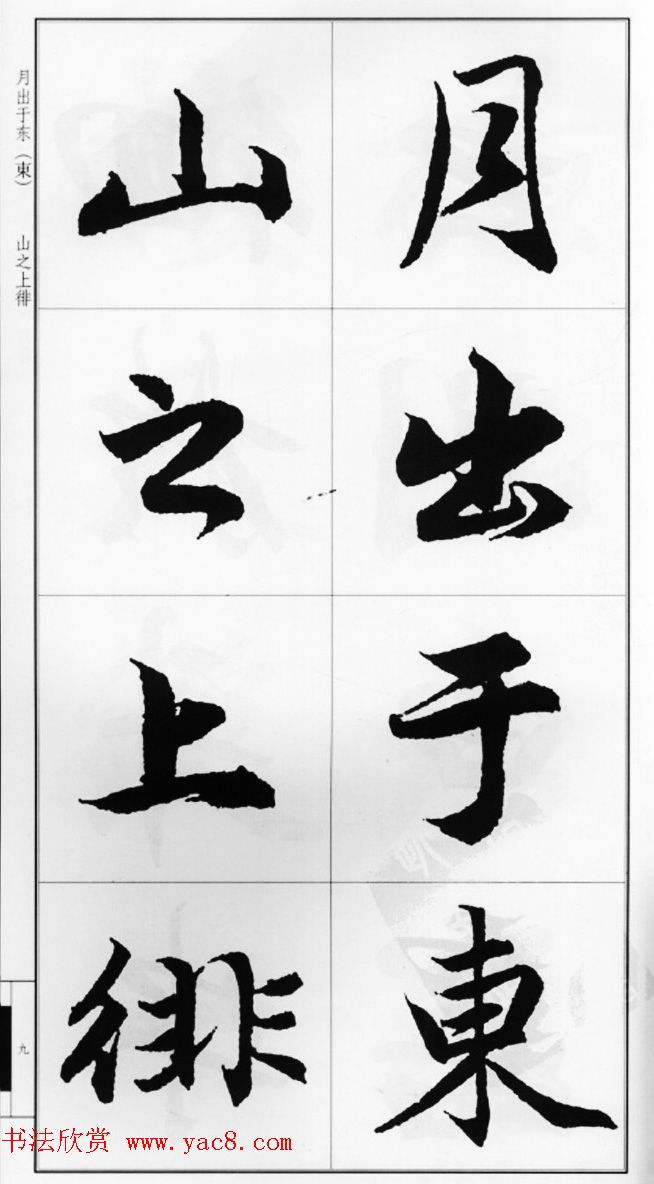 月出于東
山之上徘
月出于东（東） 山之上徘
九
书法欣赏 www.yac8.com